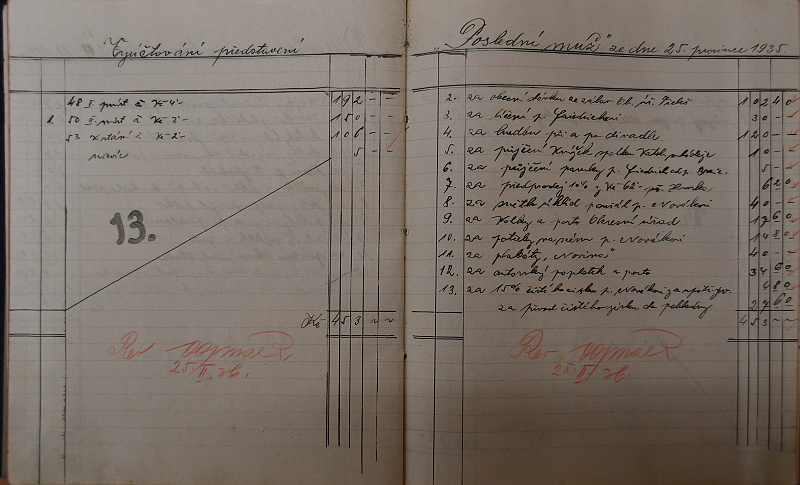 Vyúčtování představení
48 I. míst à Kč 4·-
192 - -
1. 50 II. míst à Kč 3·-
150 - -
53 k stání à Kč 2·-
106 - -
navíc
5 - -
13.
Kč 453 - -
Rev.
25./II. 36.
"Poslední muž" ze dne 25. prosince 1935.
2. za obecní dávku ze zábav Ob. úř.
102 40
3. za líčení p.
30 -
4. za při a po divadle
120 -
5. za půjčení knížek spolku
10 -
6. za půjčení paruky p. Friedrich
5 -
7. za předprodej 10% z Kč 62·-
6 20
8. za světlo úklid p. Nováková
40 -
9. za kolky a porto Okresní úřad
17 60
10. za potisky p. Nováková
14 80
11. za plakáty "Novina"
40 -
12. za autorský poplatek a porto
34 60
13. za 15% čistého zisku p. Nováková
4 80
za převod čistého zisku do pokladny
27 60
453 -
Rev.
25./II. 36.